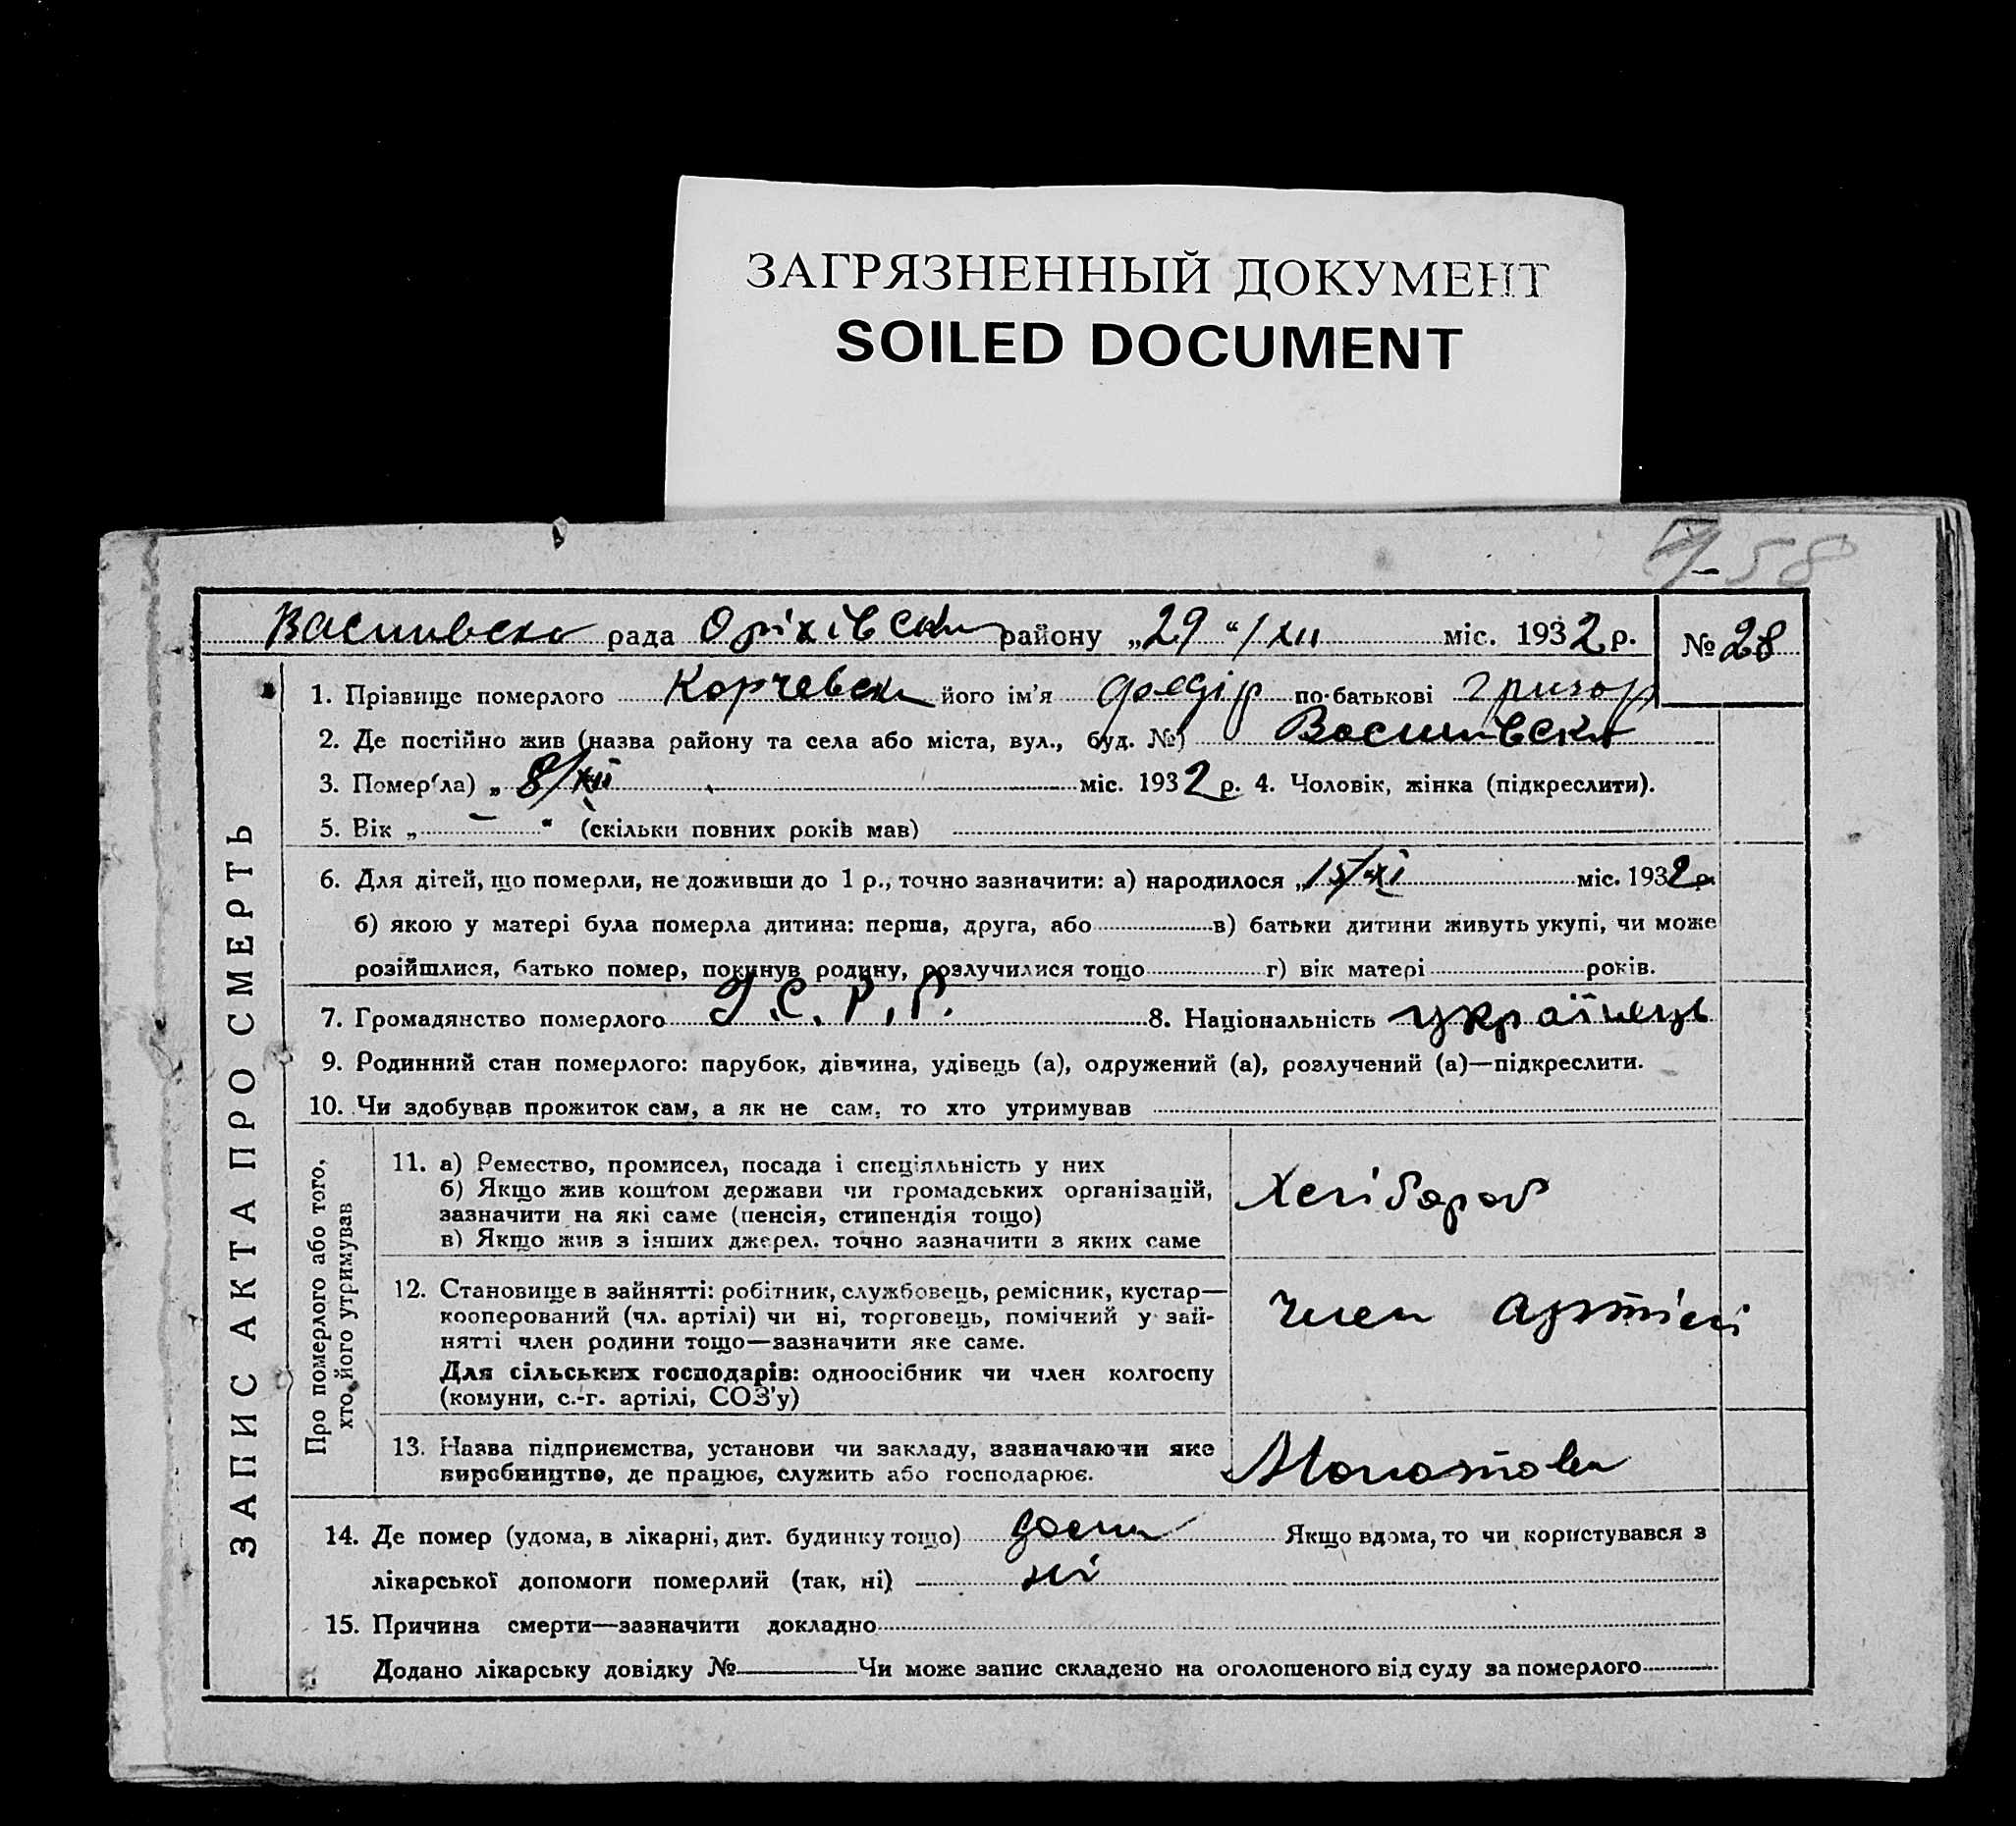 ЗАГРЯЗНЕННЫЙ ДОКУМЕНТ
SOILED DOCUMENT
58
Василівска рада Оріхівски району „29“/XII міс. 1932 р. № 28
1. Прізвище померлого Корчевски його ім'я Федір по-батькові Григор
2. Де постійно жив (назва району та села або міста, вул., буд. №) Василівска
3. Помер(ла) „ 8/XII міс. 1932 р. 4. Чоловік, жінка (підкреслити).
5. Вік „ — “ (скільки повних років мав)
6. Для дітей, що померли, не доживши до 1 р., точно зазначити: а) народилося „15/XI міс. 1932 р.
б) якою у матері була померла дитина: перша, друга, або в) батьки дитини живуть укупі, чи може
розійшлися, батько помер, покинув родину, розлучилися тощо г) вік матері років.
7. Громадянство померлого У.С.Р.Р. 8. Національність українець
9. Родинний стан померлого: парубок, дівчина, удівець (а), одружений (а), розлучений (а)—підкреслити.
10. Чи здобував прожиток сам, а як не сам, то хто утримував
ЗАПИС АКТА ПРО СМЕРТЬ
Про померлого або того,
хто його утримував
11. а) Ремество, промисел, посада і спеціяльність у них
б) Якщо жив коштом держави чи громадських організацій,
зазначити на які саме (пенсія, стипендія тощо)
в) Якщо жив з інших джерел, точно зазначити з яких саме
Хлібороб
12. Становище в зайнятті: робітник, службовець, ремісник, кустар—
кооперований (чл. артілі) чи ні, торговець, помічний у зай-
нятті член родини тощо—зазначити яке саме.
Для сільських господарів: одноосібник чи член колгоспу
(комуни, с.-г. артілі, СОЗ'у)
член артілі
13. Назва підприємства, установи чи закладу, зазначаючи яке
виробництво, де працює, служить або господарює.
14. Де помер (удома, в лікарні, дит. будинку тощо) дома Якщо вдома, то чи користувався з
лікарської допомоги померлий (так, ні) ні
15. Причина смерти—зазначити докладно
Додано лікарську довідку № Чи може запис складено на оголошеного від суду за померлого